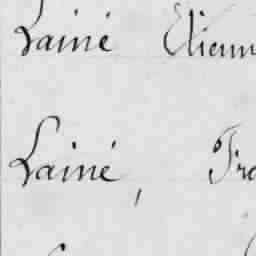 Lainé Etienn
Lainé, Fra